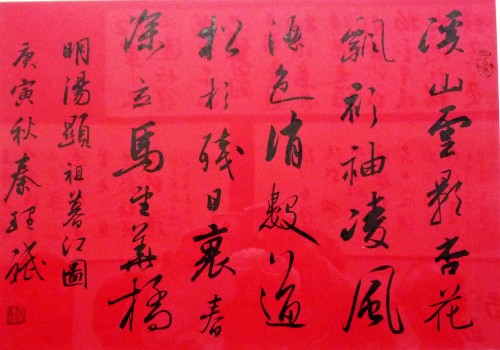 溪山雲影杏花
飄衫袖凌風
酒色消數道
松杉殘日裏春
深立馬望華橋
明湯顯祖暮江圖
庚寅秋秦